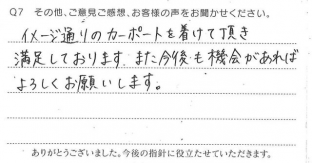 Q7 その他、ご意見ご感想、お客様の声をお聞かせください。
イメージ通りのカーポートを着けて頂き
満足しております。また今後も機会があれば
よろしくお願いします。
ありがとうございました。今後の指針に役立たせていただきます。